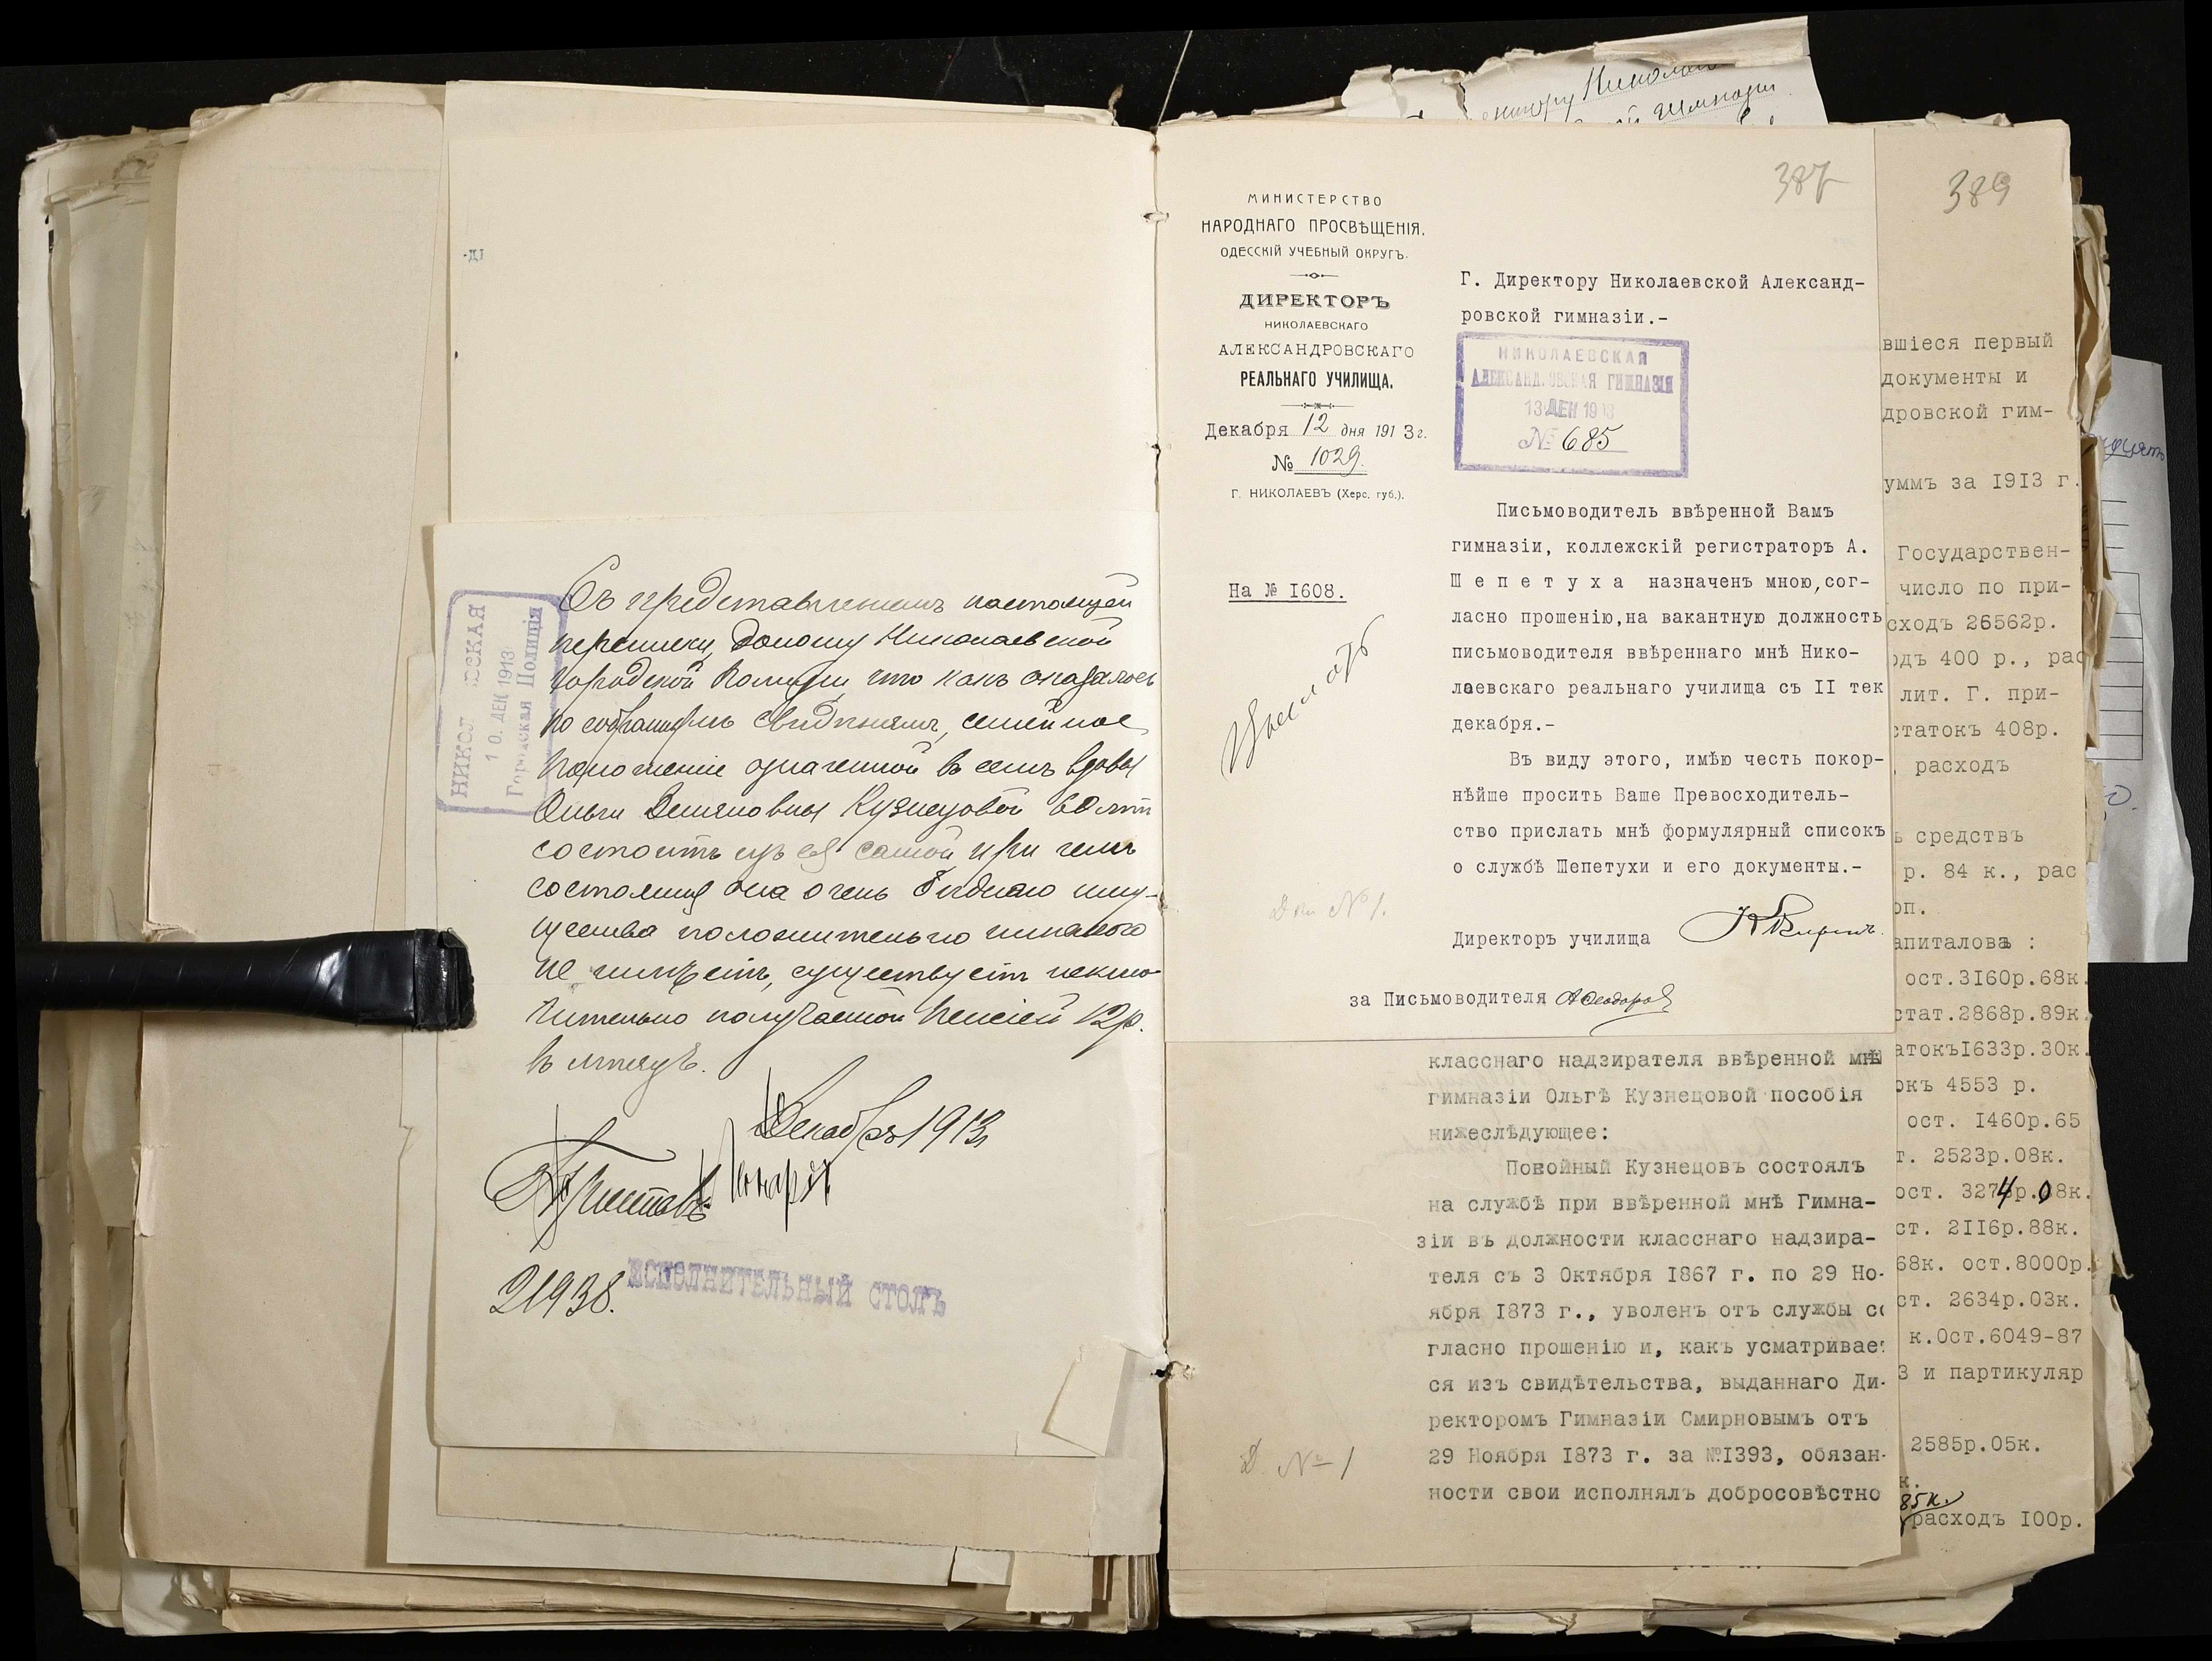 -ді
Съ представленіемъ настоящей
переписки, доношу Николаевской
Городской Полиціи, что какъ оказалось
по собраннымъ свѣдѣніямъ, семейное
положеніе означенной въ семъ вдовы
Ольги Демяновны Кузнецовой 60 лѣтъ
состоитъ изъ ея самой при чемъ
состоянія она очень бѣднаго иму-
щества положительно никакого
не имѣетъ, существуетъ исклю-
чительно получаемой пенсіей 12р.
въ мѣсяцъ.
Декабря 1913
Приставъ
21938.
ИСПОЛНИТЕЛЬНЫЙ СТОЛЪ
НИКОЛ ВСКАЯ
10. ДЕК 1913
Городская Полиція
387
МИНИСТЕРСТВО
НАРОДНАГО ПРОСВѢЩЕНІЯ.
ОДЕССКІЙ УЧЕБНЫЙ ОКРУГЪ.
ДИРЕКТОРЪ
НИКОЛАЕВСКАГО
АЛЕКСАНДРОВСКАГО
РЕАЛЬНАГО УЧИЛИЩА.
Декабря 12 дня 1913г.
№ 1029.
Г. НИКОЛАЕВЪ (Херс. губ.).
На № I608.
Г. Директору Николаевской Александ-
ровской гимназіи.-
НИКОЛАЕВСКАЯ
АЛЕКСАНДРОВСКАЯ ГИМНАЗІЯ
13 ДЕК 1913
№ 685
Письмоводитель ввѣренной Вамъ
гимназіи, коллежскій регистраторъ А.
Шепетуха назначенъ мною,сог-
ласно прошенію,на вакантную должность
письмоводителя ввѣреннаго мнѣ Нико-
лаевскаго реальнаго училища съ II тек
декабря.-
Въ виду этого, имѣю честь покор-
нѣйше просить Ваше Превосходитель-
ство прислать мнѣ формулярный списокъ
о службѣ Шепетухи и его документы.-
№ 1.
Директоръ училища
за Письмоводителя АФеодоровъ
класснаго надзирателя ввѣренной мнѣ
гимназіи Ольгѣ Кузнецовой пособія
нижеслѣдующее:
Покойный Кузнецовъ состоялъ
на службѣ при ввѣренной мнѣ Гимна-
зіи въ должности класснаго надзира-
теля съ 3 Октября I867 г. по 29 Но-
ября I873 г., уволенъ отъ службы со
гласно прошенію и, какъ усматривает
ся изъ свидѣтельства, выданнаго Ди-
ректоромъ Гимназіи Смирновымъ отъ
29 Ноября I873 г. за №I393, обязан-
ности свои исполнялъ добросовѣстно
Д. № 1
389
вшіеся первый
документы и
дровской гим-
уммъ за I9I3 г.
Государствен-
число по при-
сходъ 26562р.
одъ 400 р., рас
лит. Г. при-
статокъ 408р.
расходъ
ь средствъ
р. 84 к., рас
оп.
апиталовъ :
ост.3I60р.68к.
стат.2868р.89к.
атокъI633р.30к.
окъ 4553 р.
ост. I460р.65
т. 2523р.08к.
ост. 3274р.08к.
ст. 2II6р.88к.
68к. ост.8000р.
ст. 2634р.03к.
к.Ост.6049-87
3 и партикуляр
2585р.05к.
к.
85к.
расходъ I00р.